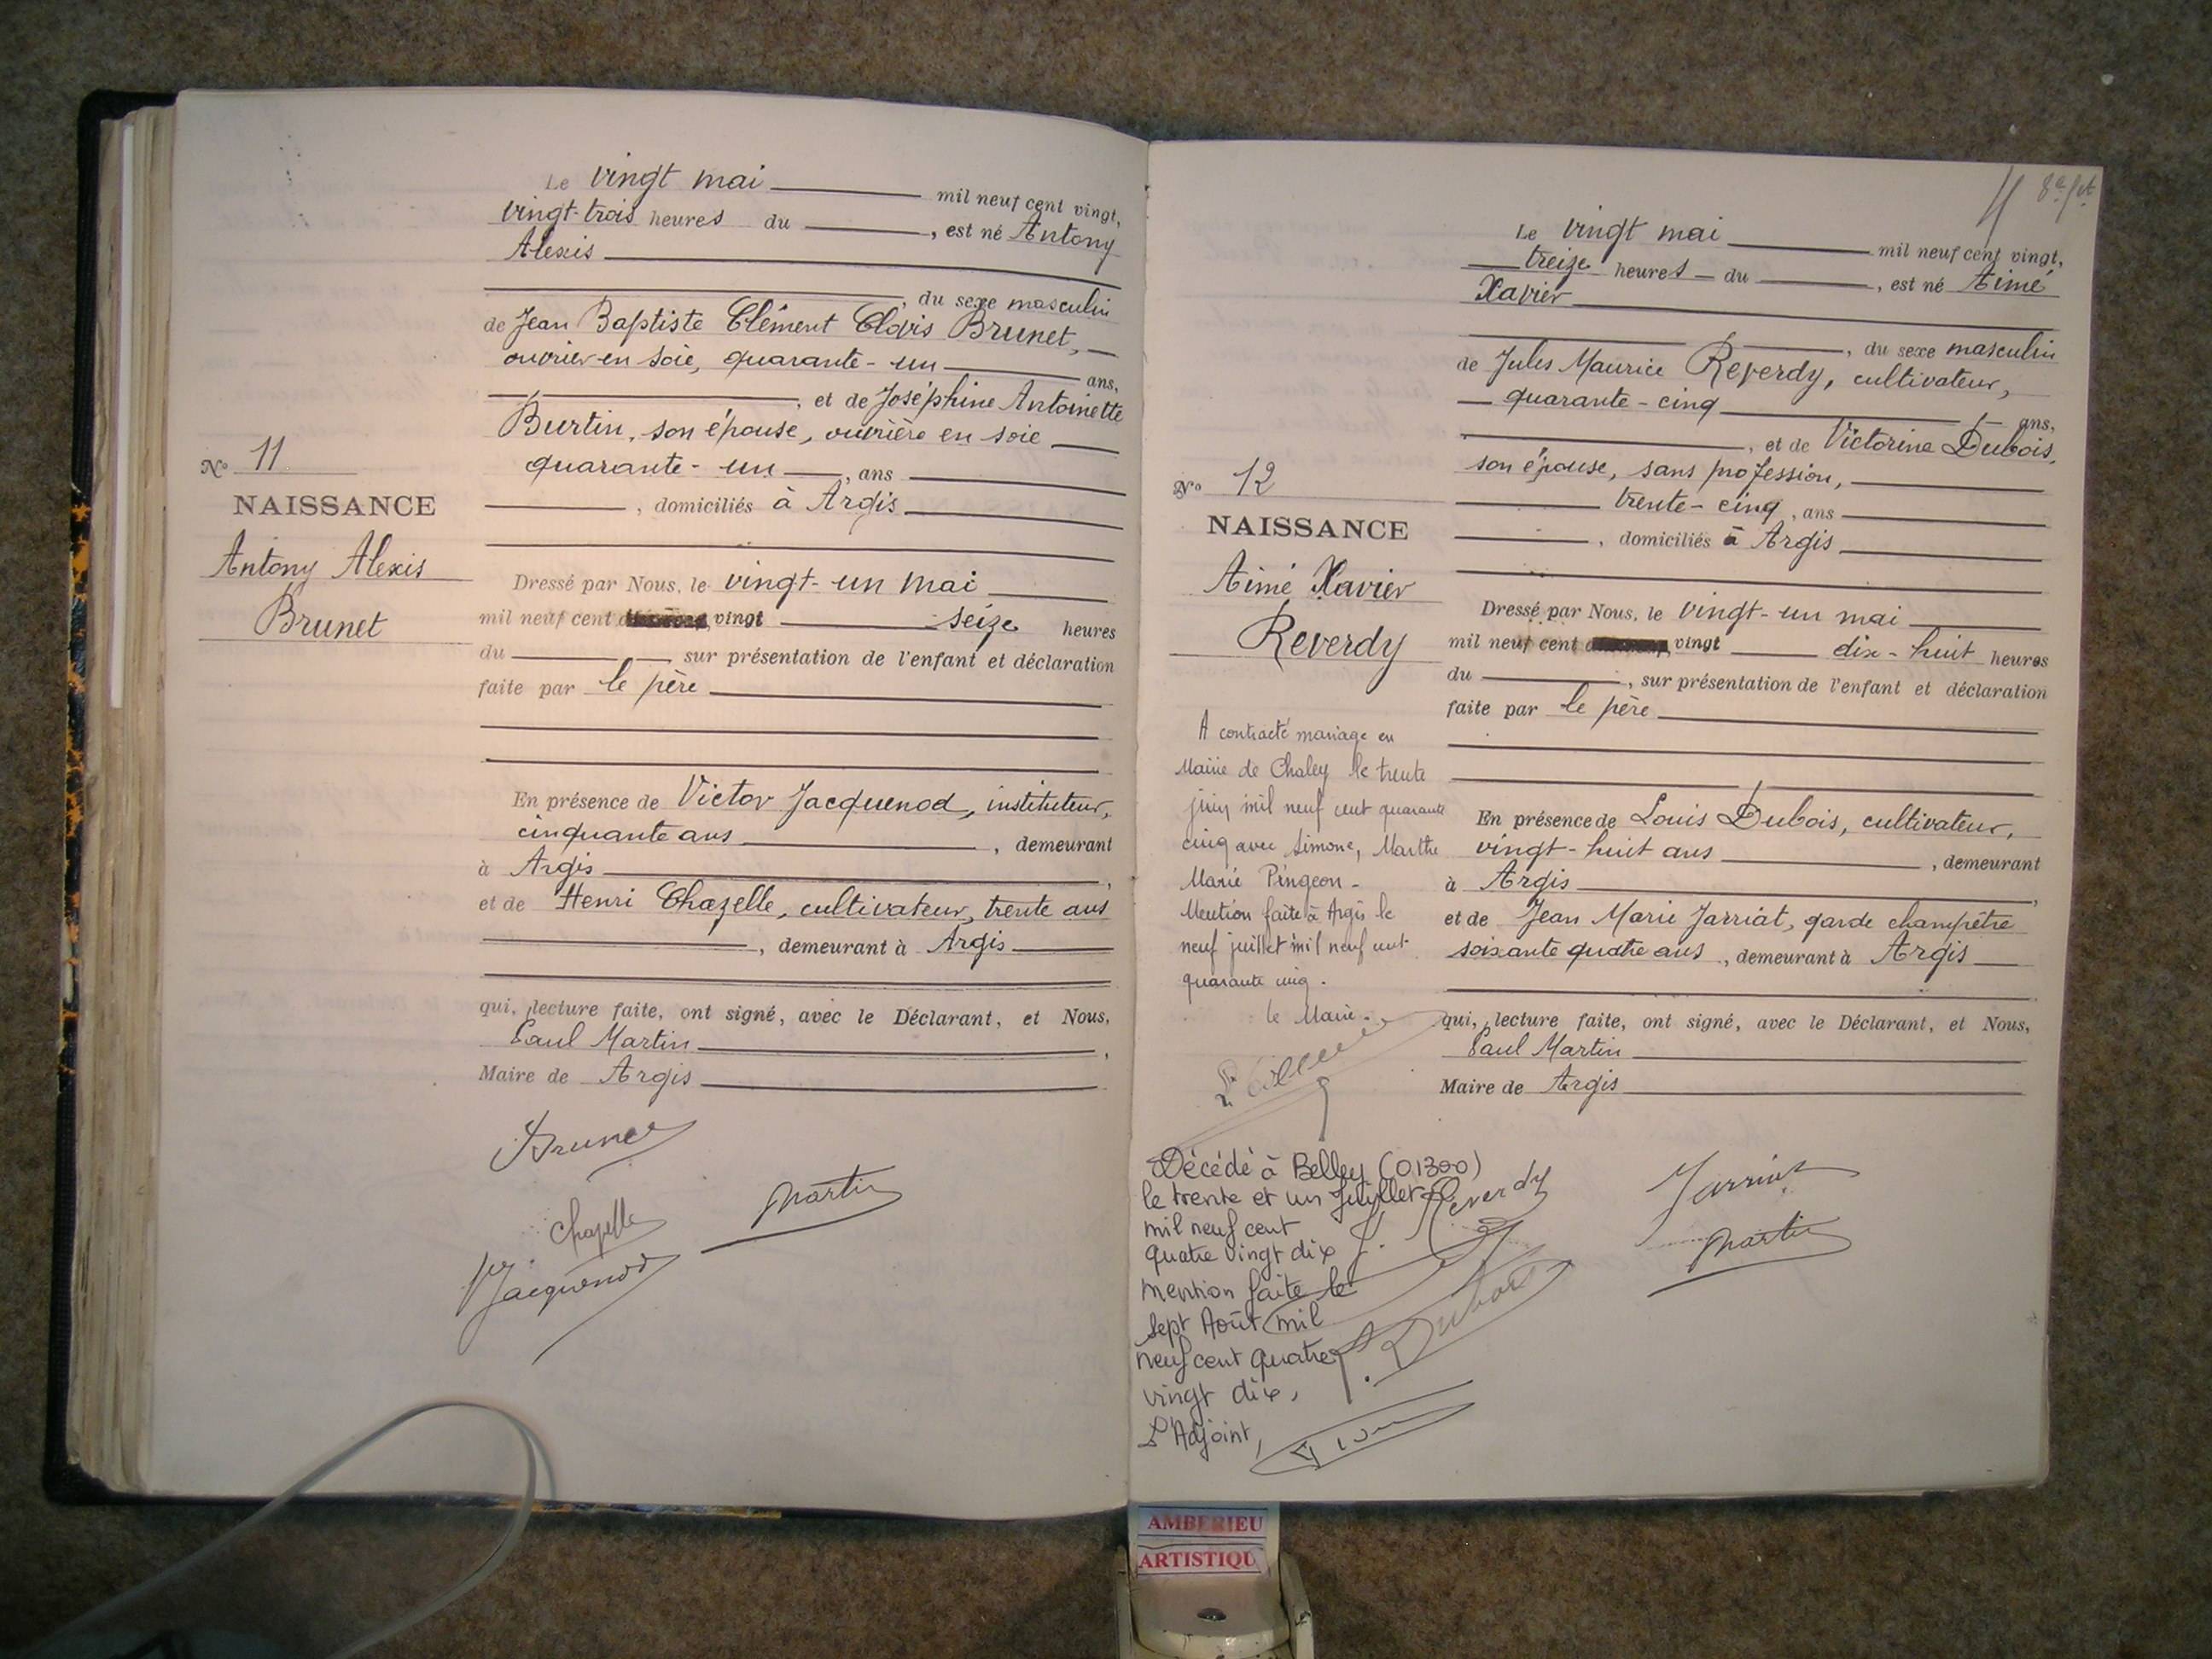 Le vingt mai mil neuf cent vingt,
vingt-trois heures du , est né Antony
Alexis
, du sexe masculin
de Jean Baptiste Clément Clovis Brunet,
ouvrier en soie, quarante-un ans,
, et de Joséphine Antoinette
Burtin, son épouse, ouvrière en soie
quarante-un , ans
, domiciliés à Argis
N° 11
NAISSANCE
Antony Alexis
Brunet
Dressé par Nous, le vingt-un mai
mil neuf cent vingt seize heures
du sur présentation de l'enfant et déclaration
faite par le père
En présence de Victor Jacquenod, instituteur,
cinquante ans , demeurant
à Argis ,
et de Henri Chazelle, cultivateur, trente ans
, demeurant à Argis
qui, lecture faite, ont signé, avec le Déclarant, et Nous,
Paul Martin ,
Maire de Argis
Brunet
Chapelle
Martin
Jacquenod
Le vingt mai mil neuf cent vingt,
treize heures du , est né Aimé
Xavier
, du sexe masculin
de Jules Maurice Reverdy, cultivateur,
quarante-cinq ans,
, et de Victorine Dubois,
son épouse, sans profession,
trente-cinq , ans
, domiciliés à Argis
N° 12
NAISSANCE
Aimé Xavier
Reverdy
Dressé par Nous, le vingt-un mai
mil neuf cent vingt dix-huit heures
du , sur présentation de l'enfant et déclaration
faite par le père
En présence de Louis Dubois, cultivateur,
vingt-huit ans , demeurant
à Argis ,
et de Jean Marie Jarriat, garde champêtre
soixante quatre ans , demeurant à Argis
qui, lecture faite, ont signé, avec le Déclarant, et Nous,
Paul Martin
Maire de Argis
A contracté mariage en
Mairie de Chaley le trente
juin mil neuf cent quarante
cinq avec Simone, Marthe
Marie Pingeon -
Mention faite à Argis le
neuf juillet mil neuf cent
quarante cinq.
le Maire.
Décédé à Belley (01300)
le trente et un Juillet
mil neuf cent
quatre vingt dix
mention faite le
sept Août mil
neuf cent quatre
vingt dix,
L'Adjoint,
J. Reverdy
Jarriat
Martin
L. Dubois
AMBERIEU
ARTISTIQU